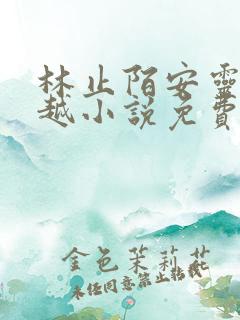 林止陌安靈
越小說免費
金色茉莉花
未经同意禁止转载